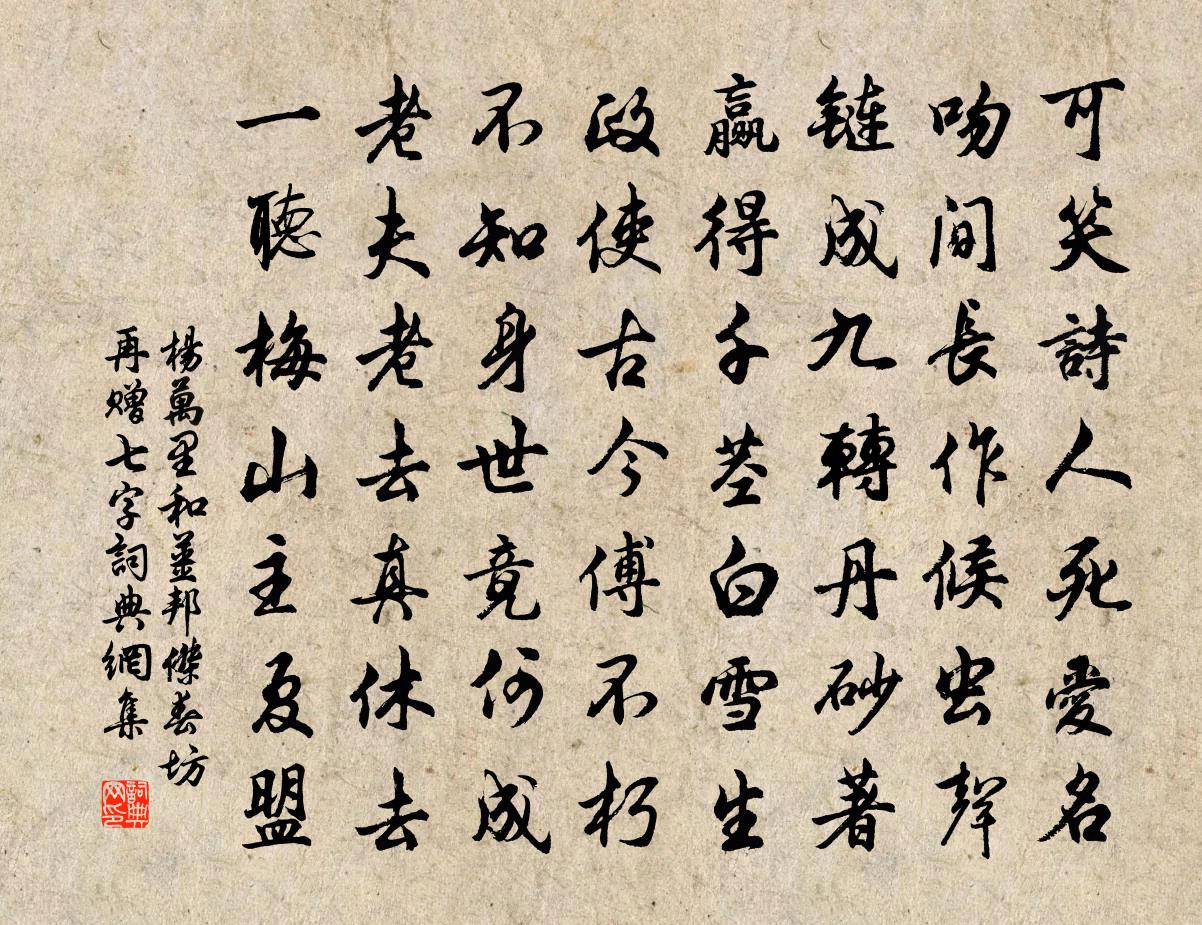 可笑詩人死愛名
吻間長作候虫聲
鏈成九轉丹砂著
贏得千茎白雪生
政使古今傅不朽
不知身世竟何成
老夫老去真休去
一聽梅山主夏盟
楊萬里和薑邦傑春坊
再贈七字詞典網集
詞典网印